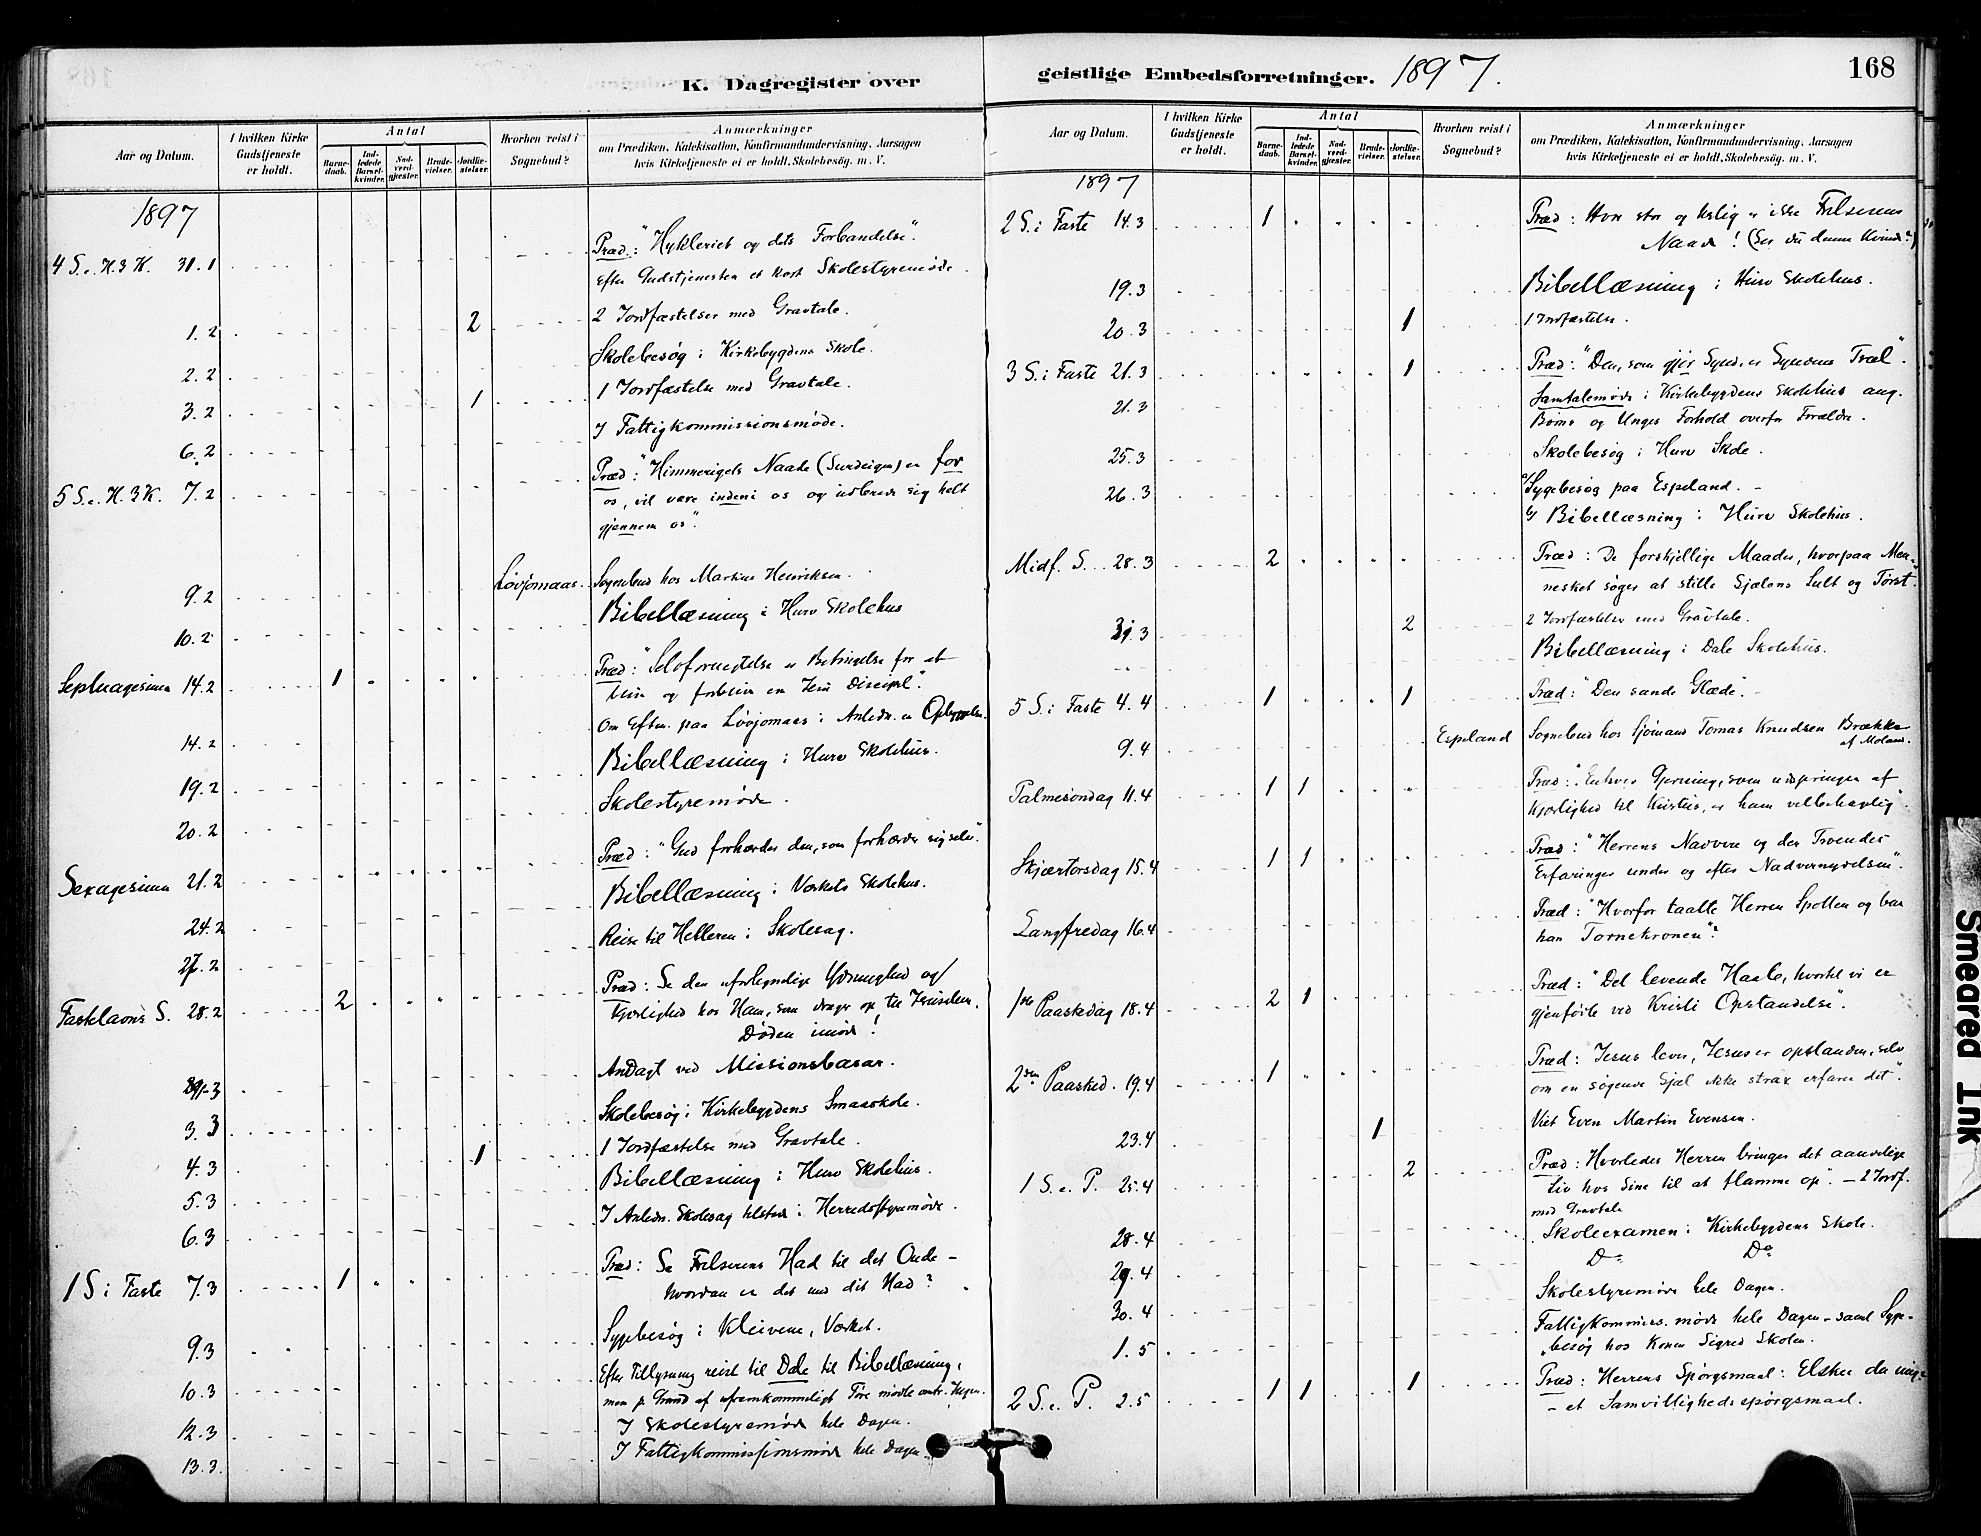 K. Dagregister over geistlige Embedsforretninger. 1897. 168
Aar og Datum.
I hvilken Kirke Gudstjeneste er holdt.
Antal
Barnedaab.
Indledede Barselkvinder.
Nadverdgjester.
Brudevielser.
Jordfæstelser.
Hvorhen reist i Sognebud?
Anmærkninger
om Prædiken, Katekisation, Konfirmandundervisning, Aarsagen
hvis Kirketjeneste ei er holdt, Skolebesög. m. V.
1897
4 S. e. H. 3 K. 31.1 Præd: "Hykleriet og dets Forbandelse".
Efter Gudstjenesten et kort Skolestyremøde.
1.2 2 2 Jordfæstelser med Gravtale.
2.2 Skolebesøg i Kirkebygdens Skole.
3.2 1 1 Jordfæstelse med Gravtale.
6.2 I Fattigkommissionsmøde.
5 S. e. H. 3 K. 7.2 Præd: "Himmerigets Naade (Surdeigen) er for
os, vil være indeni os og udbrede sig helt
gjennem os".
9.2 Løvjomaas Sognebud hos Markus Henriksen.
10.2 Bibellæsning i Hurv Skolehus
Septuagesima 14.2 1 Præd: "Selvfornegtelse er Betingelse for at
blive og forblive en Jesu Discipel".
14.2 Om Efterm. paa Løvjomaas i Anledn. en
19.2 Bibellæsning i Hurv Skolehus.
20.2 Skolestyremøde.
Sexagesima 21.2 Præd: "Gud forhærder den, som forhærder sig selv".
24.2 Bibellæsning i Værkets Skolehus.
27.2 Reise til Helleren i Skolesag.
Fastelavns S. 28.2 2 Præd: Se den uforlignelige Ydmyghed og
Kjærlighed hos Ham, som drager op til Jerusalem,
Døden imøde!
Andagt ved Missionsbasar.
3.3 Skolebesøg i Kirkebygdens Smaaskole.
4.3 1 1 Jordfæstelse med Gravtale.
5.3 Bibellæsning i Hurv Skolehus.
6.3 I Anledn. Skolesag tilstede i Herredsstyremøde.
1 S. i Faste 7.3 1 Præd: Se Frelserens Had til det Onde -
hvordan er det med dit Had?
9.3 Sygebesøg i Kleivene, Værket.
10.3 Efter Tillysning reist til Dale til Bibellæsning,
men p. Grund af ufremkommeligt Føre mødte omtr. Ingen.
12.3 I Skolestyremøde hele Dagen.
13.3 I Fattigkommissjonsmøde hele Dagen.
Aar og Datum.
I hvilken Kirke Gudstjeneste er holdt.
Antal
Barnedaab.
Indledede Barselkvinder.
Nadverdgjester.
Brudevielser.
Jordfæstelser.
Hvorhen reist i Sognebud?
Anmærkninger
om Prædiken, Katekisation, Konfirmandundervisning, Aarsagen
hvis Kirketjeneste ei er holdt, Skolebesög. m. V.
1897
2 S. i Faste 14.3 1 Præd: Hvor stor og herlig er ikke Frelserens
Naade! (Ser du denne Kvinde?)
19.3 Bibellæsning i Hurv Skolehus.
20.3 1 1 Jordfæstelse.
3 S. i Faste 21.3 1 Præd: "Den, som gjør Synd, er Syndens Træl".
21.3 Samtalemøde i Kirkebygdens Skolehus ang.
Børns og Unges Forhold overfor Forældre.
25.3 Skolebesøg i Hurv Skole.
26.3 a/ Sygebesøg paa Espeland. -
b/ Bibellæsning i Hurv Skolehus.
Midf. S. 28.3 2 Præd: De forskjellige Maader, hvorpaa Men-
nesket søger at stille Sjælens Sult og Tørst.
31.3 2 2 Jordfæstelser med Gravtale.
Bibellæsning i Dale Skolehus.
5 S. i Faste 4.4 1 1 Præd: "Den sande Glæde". -
9.4 Espeland Sognebud hos Sjømand Tomas Knudsen Brække
af Moland.
Palmesøndag 11.4 1 1 Præd: "Enhver Gjerning, som udspringer af
Kjærlighed til Kristus, er ham velbehagelig".
Skjærtorsdag 15.4 1 1 Præd: "Herrens Nadvere og den Troendes
Erfaringer under og efter Nadvernydelsen".
Langfredag 16.4 Præd: "Hvorfor taalte Herren Spotten og bar
han Tornekronen"?
1ste Paaskedag 18.4 2 1 Præd: "Det levende Haab, hvortil vi er
gjenfødte ved Kristi Opstandelse".
2den Paasked. 19.4 1 Præd: "Jesus lever, Jesus er opstanden, selv
om en søgende Sjæl ikke strax erfarer det".
23.4 1 Viet Even Martin Evensen.
1 S. e. P. 25.4 2 Præd: Hvorledes Herren bringer det aandelige
Liv hos sine til at flamme op". - 2 Jordf.
med Gravtale
28.4 Skoleexamen i Kirkebygdens Skole.
29.4 Do Do
30.4 Skolestyremøde hele Dagen.
1.5 Fattigkommiss. møde hele Dagen - samt Syge-
besøg hos Konen Sigrid Skolen.
2 S. e. P. 2.5 1 1 1 Præd: Herrens Spørgsmaal: Elsker du mig -
- et Samvittighedsspørgsmaal.
Smeared Ink